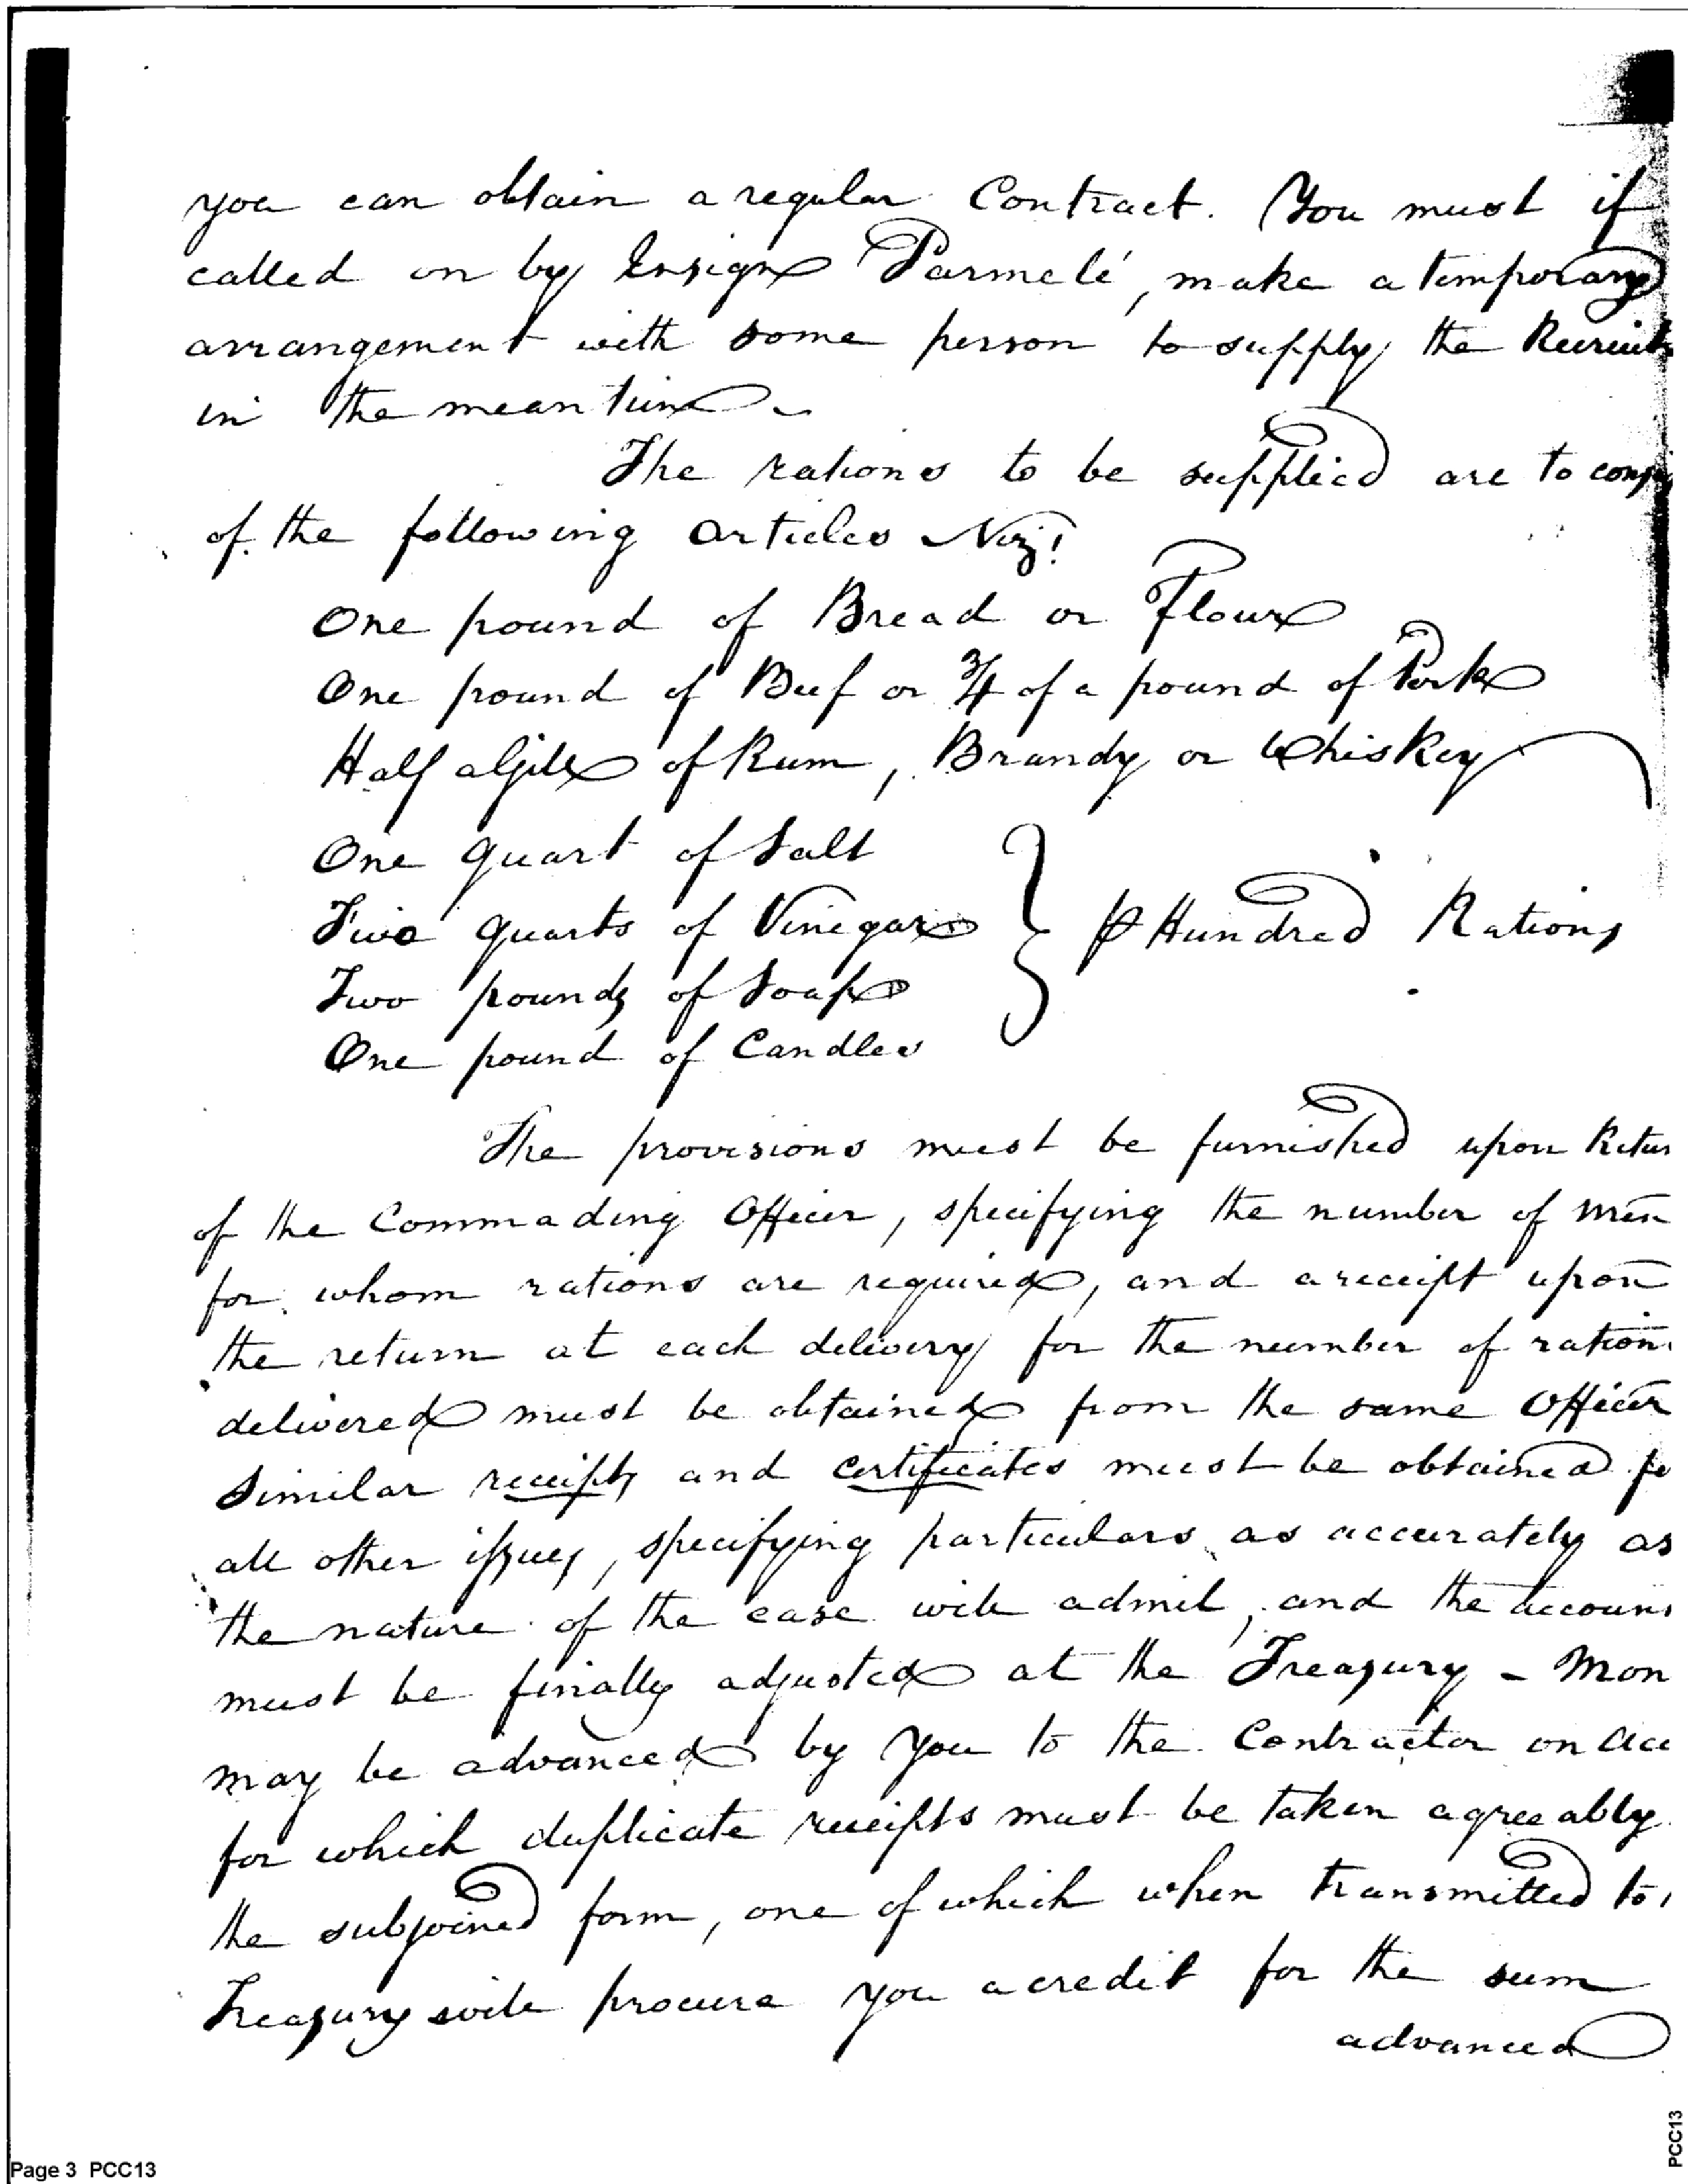 you can obtain a regular Contract. You must if
called on by Ensign Parmelé, make a temporary
arrangement with some person to supply the Recruits
in the mean time
The rations to be supplied are to cons
of the following articles Viz!
One pound of Bread or Flour
One pound of Beef or 3/4 of a pound of Pork
Half a Gill of Rum, Brandy or Whiskey
One quart of Salt
Two quarts of Vinegar } ⅌ Hundred Rations
Two pounds of Soap
One pound of Candles
The provisions must be furnished upon Retur
of the Commading Officer, specifying the number of men
for whom rations are required, and a receipt upon
the return at each delivery for the number of ration
delivered must be obtained from the same Officer
Similar receipts and certificates must be obtained fo
all other issues, specifying particulars as accurately as
the nature of the case will admit, and the accoun
must be finally adjusted at the Treasury - Mon
may be advanced by you to the Contractor on acc
for which duplicate receipts must be taken agreeably
the subjoined form, one of which when transmitted to
Treasury will procure you a credit for the sum
advanced
Page 3 PCC13
PCC13